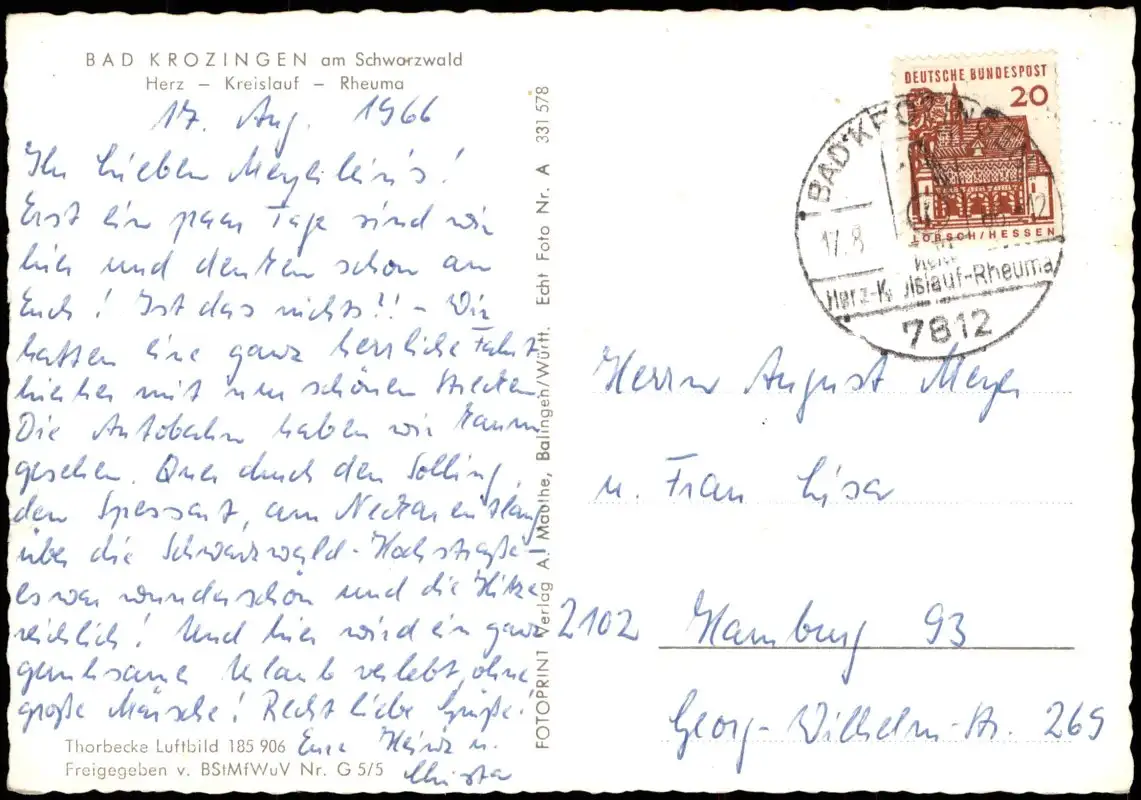 BAD KROZINGEN am Schwarzwald
Herz – Kreislauf – Rheuma
17. Aug. 1966
Ihr lieben Meyerlein's!
Erst ein paar Tage sind wir
hier und denken schon an
Euch! Ist das nichts?! – Wir
hatten eine ganz herrliche Fahrt
hierher mit nur schönen Strecken
Die Autobahn haben wir kaum
gesehen. Quer durch den Solling,
den Spessart, am Neckar entlang
über die Schwarzwald-Hochstraße –
es war wunderschön und die Hitze
reichlich! Und hier wird ein ganz
gemeinsamer Urlaub verlebt, ohne
große Märsche! Recht liebe Grüße!
Eure Heinz u.
Christa
Thorbecke Luftbild 185 906
Freigegeben v. BStMfWuV Nr. G 5/5
FOTOPRINT Verlag A. Mauthe, Balingen/Württ. Echt Foto Nr. A 331 578
DEUTSCHE BUNDESPOST
20
LORSCH/HESSEN
BAD KROZINGEN
17.8.
Herz-Kreislauf-Rheuma
7812
Herrn August Meyer
u. Frau Lisa
2102 Hamburg 93
Georg-Wilhelm-Str. 269